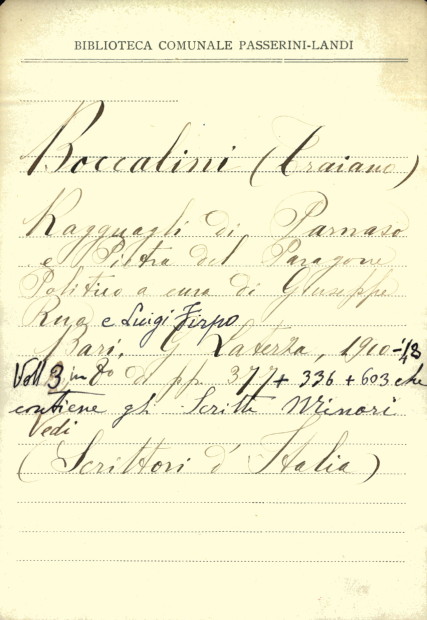 BIBLIOTECA COMUNALE PASSERINI-LANDI
Boccalini (Traiano)
Ragguagli di Parnaso
e Pietra del Paragone
Politico a cura di Giuseppe
Rua e Luigi Firpo
Bari, G Laterza, 1910-'48
Voll 3 in 8º di pp. 377 + 336 + 603 che
contiene gli Scritti Minori
Vedi
(Scrittori d'Italia)